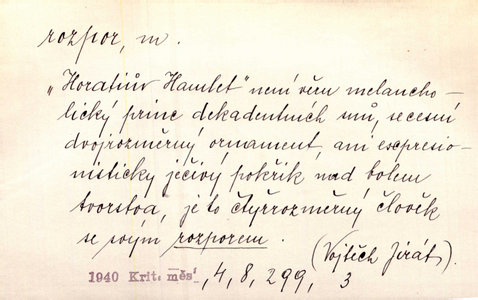 rozpor, m.
„Horatiův Hamlet" není věru melancho-
lický princ dekadentních snů, secesní
dvojrozměrný ornament, ani expresio-
nisticky ječivý pokřik nad bolem
tvorstva, je to čtyřrozměrný člověk
se svým rozporem.
(Vojtěch Jirát).
1940 Krit. měs., 4, 8, 299, 3